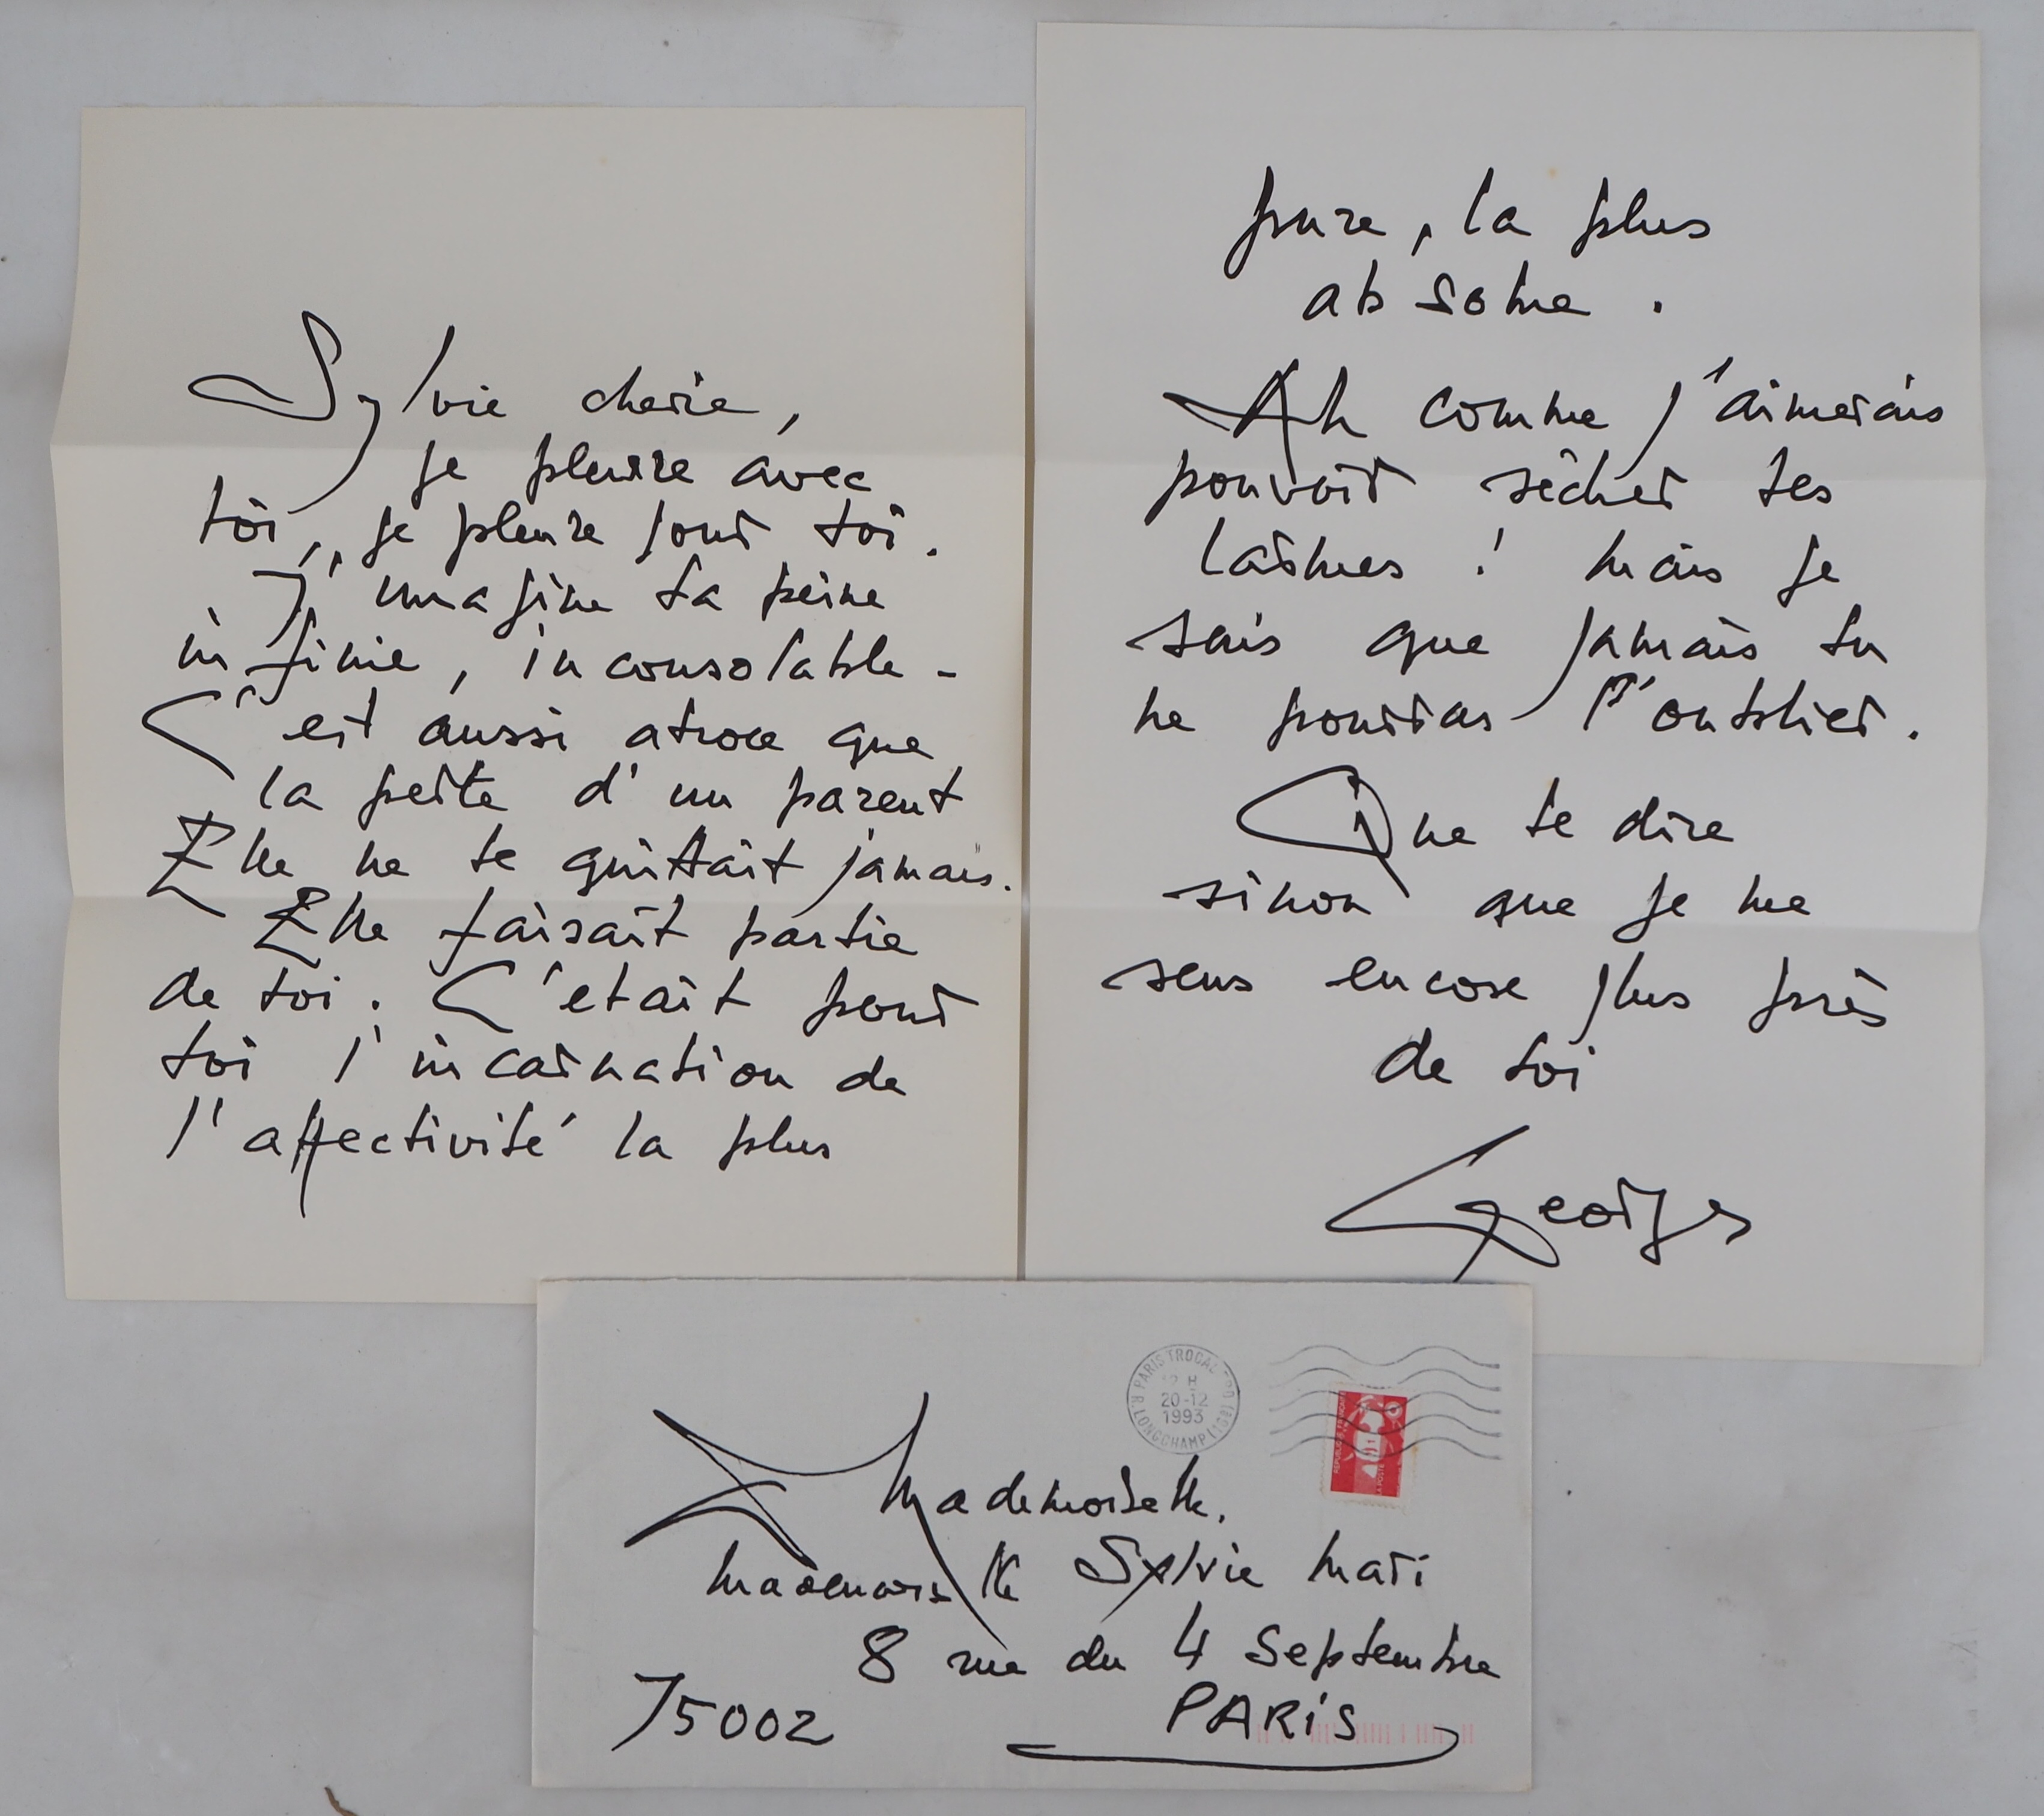 Sylvie cherie,
je pleure avec
toi, je pleure pour toi.
J'imagine ta peine
infinie, inconsolable -
C'est aussi atroce que
la perte d'un parent
Elle ne te quittait jamais.
Elle faisait partie
de toi. C'etait pour
toi l'incarnation de
l'affectivité la plus
pure, la plus
absolue.
Ah comme j'aimerais
pouvoir sêcher tes
larmes ! mais je
sais que jamais tu
ne pourras l'oublier.
Que te dire
sinon que je me
sens encore plus près
de toi
Georges
R. PARIS TROCADERO
12 H
20-12
1993
LONGCHAMP (16E)
Mademoiselle,
Mademoiselle Sylvie Mari
8 rue du 4 Septembre
75002 PARIS